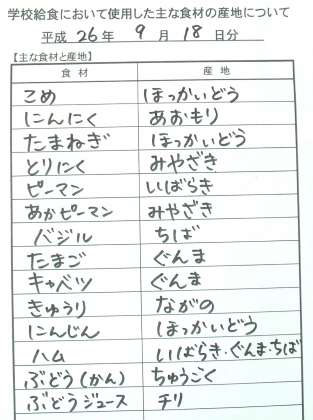 学校給食において使用した主な食材の産地について
平成 26 年 9 月 18 日分
【主な食材と産地】
食材 産地
こめ ほっかいどう
にんにく あおもり
たまねぎ ほっかいどう
とりにく みやざき
ピーマン いばらき
あかピーマン みやざき
バジル ちば
たまご ぐんま
キャベツ ぐんま
きゅうり ながの
にんじん ほっかいどう
ハム いばらき・ぐんま・ちば
ぶどう(かん) ちゅうごく
ぶどうジュース チリ